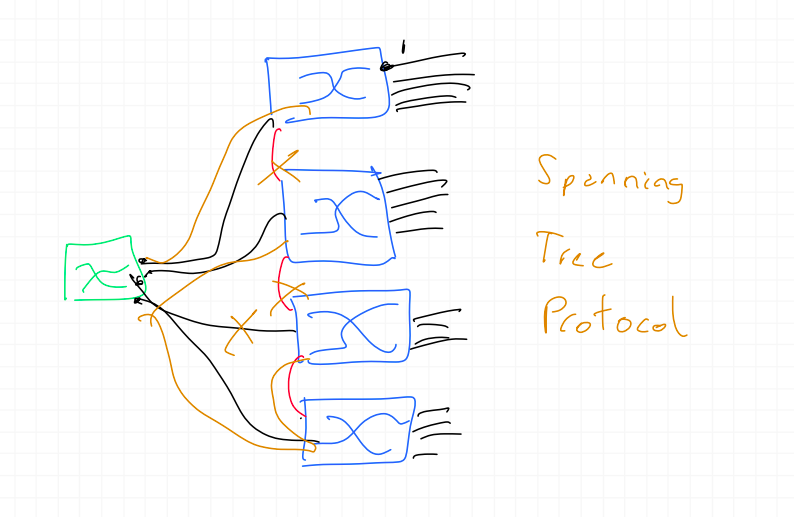 1
Spanning
Tree
Protocol